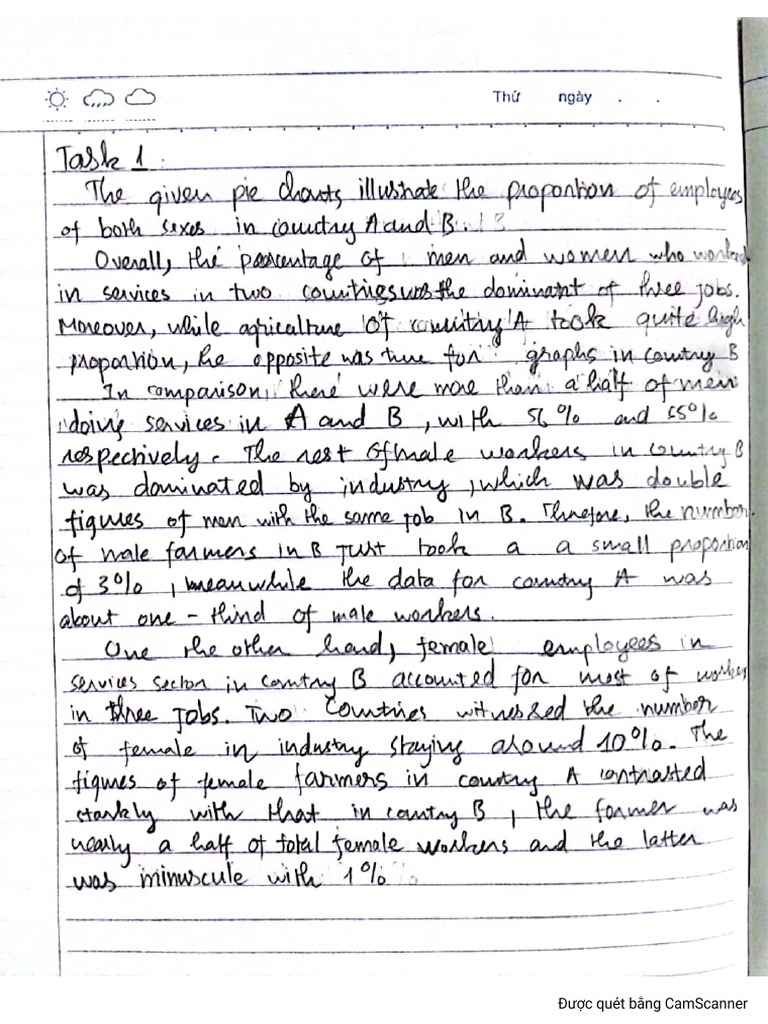 Thứ ngày . .
Task 1 :
The given pie charts illustrate the proportion of employees
of both sexes in country A and B.
Overall, the percentage of men and women who worked
in services in two countries was the dominant of three jobs.
Moreover, while agriculture of country A took quite high
proportion, the opposite was true for graphs in country B
In comparison, there were more than a half of men
doing services in A and B, with 56% and 55%
respectively. The rest of male workers in country B
was dominated by industry, which was double
figures of men with the same job in B. Therefore, the number
of male farmers in B just took a a small proportion
of 3%, meanwhile the data for country A was
about one-third of male workers.
One the other hand, female employees in
services sector in country B accounted for most of workers
in three jobs. Two countries witnessed the number
of female in industry staying around 10%. The
figures of female farmers in country A contrasted
starkly with that in country B, the former was
nearly a half of total female workers and the latter
was minuscule with 1%
Được quét bằng CamScanner